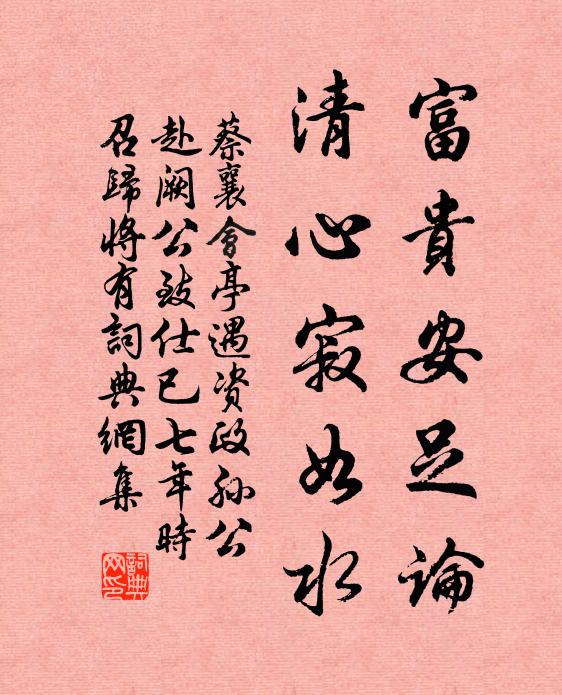 富貴安足論
清心寂如水
蔡襄會亭遇资政孙公
赴阙公致仕已七年時
召歸將有詞典網集
詞典
网印